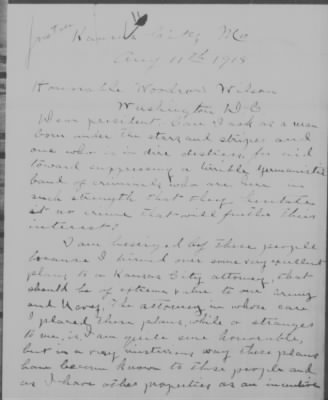 Kansas City, Mo
Aug 11th 1918
Honorable Woodrow Wilson
Washington D.C
Dear president. Can I ask as a man
born under the stars and stripes and
one who is in dire distress, for aid
toward suppressing a terrible Germanistic
band of criminals who are here in
such strength that they hesitate
at no crime that will further their
interest?
I am besieged by these people
because I turned over some very excellent
plans to a Kansas City attorney, that
should be of extreme value to our army
and Navy. The attorney in whose care
I placed these plans, while a stranger
to me, is, I am quite sure honorable,
but in a very mysterious way these plans
have become known to these people and
as I have other properties as an incentive